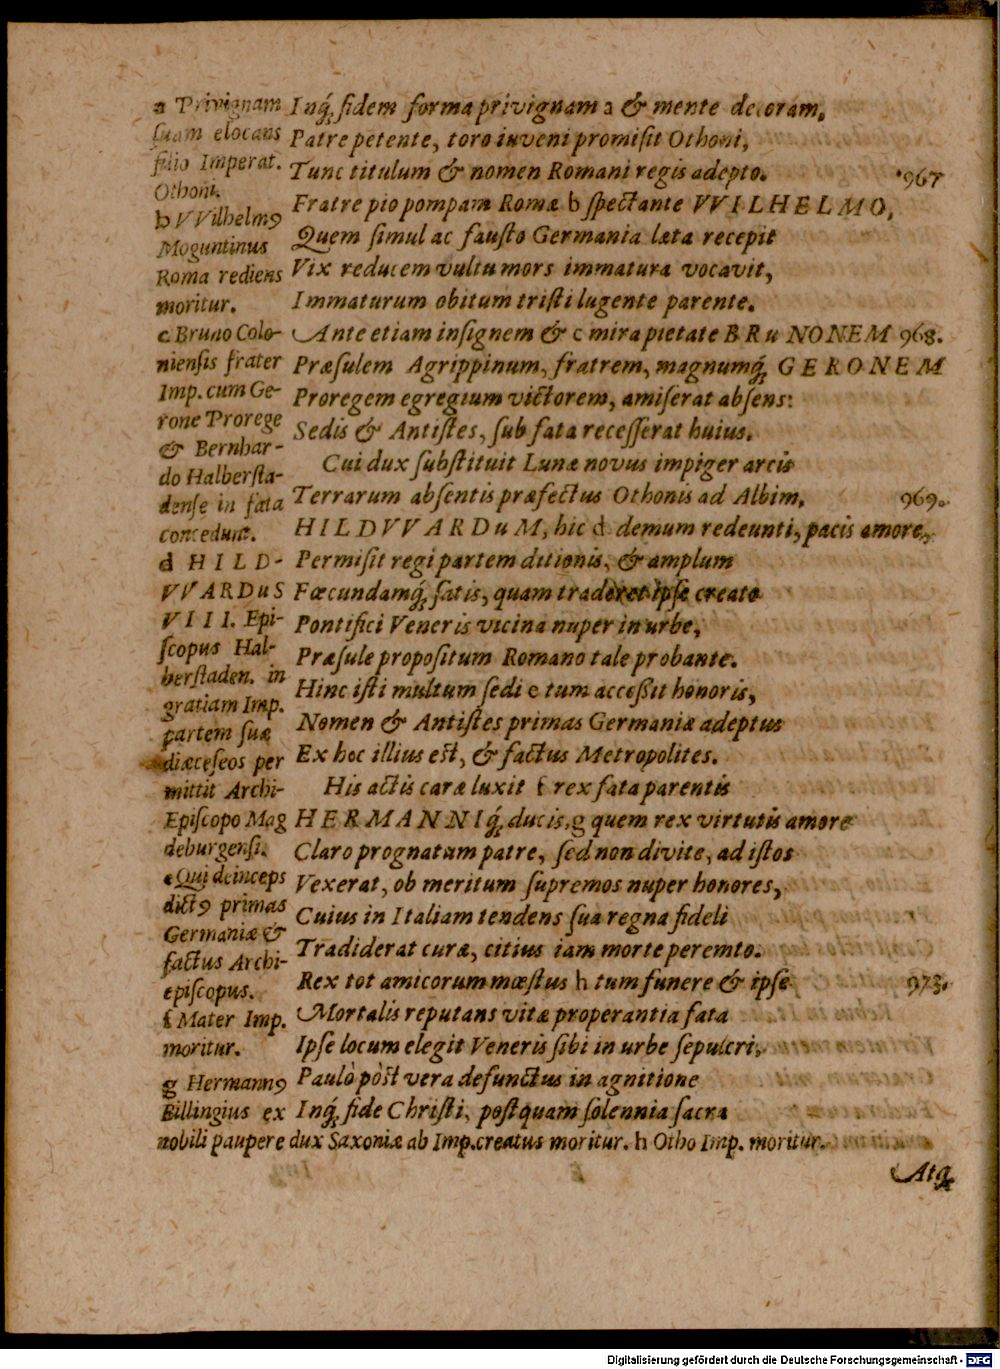 a Privignam
suam elocans
filio Imperat.
Othoni.
b VVilhelmꝯ
Moguntinus
Roma rediens
moritur.
c Bruno Colo-
niensis frater
Imp. cum Ge-
rone Prorege
& Bernhar-
do Halbersta-
dense in fata
concedunt.
d HILD-
VVARDuS
VIII. Epi-
scopus Hal-
berstaden. in
gratiam Imp.
partem suæ
diæceseos per
mittit Archi-
Episcopo Mag
deburgensi.
e Qui deinceps
dictꝯ primas
Germaniæ &
factus Archi-
episcopus.
f Mater Imp.
moritur.
g Hermannꝯ
Billingius ex
nobili paupere dux Saxoniæ ab Imp. creatus moritur. h Otho Imp. moritur.
Inq́; fidem forma privignam a & mente decoram,
Patre petente, toro iuveni promisit Othoni,
Tunc titulum & nomen Romani regis adepto. 967
Fratre pio pompam Romæ b spectante VVILHELMO,
Quem simul ac fausto Germania læta recepit
Vix reducem vultu mors immatura vocavit,
Immaturum obitum tristi lugente parente.
Ante etiam insignem & c mira pietate BRuNONEM 968.
Præsulem Agrippinum, fratrem, magnumq́; GERONEM
Proregem egregium victorem, amiserat absens:
Sedis & Antistes, sub fata recesserat huius.
Cui dux substituit Lunæ novus impiger arcis
Terrarum absentis præfectus Othonis ad Albim, 969.
HILDVVARDuM, hic d demum redeunti, pacis amore,
Permisit regi partem ditionis, & amplum
Fœcundamq́; satis, quam traderet ipse creato
Pontifici Veneris vicina nuper in urbe,
Præsule propositum Romano tale probante.
Hinc isti multum sedi e tum accessit honoris,
Nomen & Antistes primas Germaniæ adeptus
Ex hoc illius est, & factus Metropolites.
His actis caræ luxit f rex fata parentis
HERMANNIq́; ducis, g quem rex virtutis amore
Claro prognatum patre, sed non divite, ad istos
Vexerat, ob meritum supremos nuper honores,
Cuius in Italiam tendens sua regna fideli
Tradiderat curæ, citius iam morte peremto.
Rex tot amicorum mœstus h tum funere & ipse 973.
Mortalis reputans vitæ properantia fata
Ipse locum elegit Veneris sibi in urbe sepulcri,
Paulò pòst vera defunctus in agnitione
Inq́; fide Christi, postquam solennia sacra
Atq;
Digitalisierung gefördert durch die Deutsche Forschungsgemeinschaft - DFG